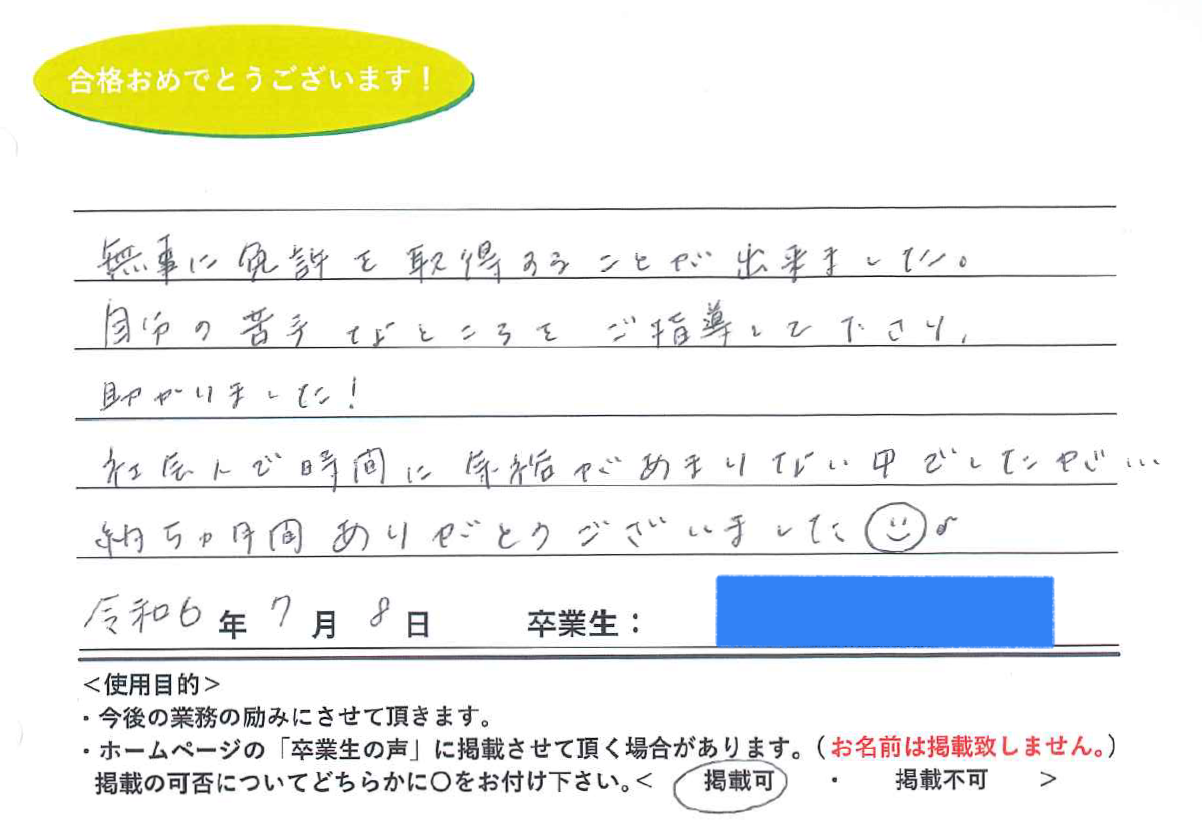 合格おめでとうございます！
無事に免許を取得することが出来ました。
自分の苦手なところをご指導して下さり、
助かりました！
社会人で時間に余裕があまりない中でしたが…
約5ヵ月間ありがとうございました
令和6年7月8日 卒業生：
＜使用目的＞
・今後の業務の励みにさせて頂きます。
・ホームページの「卒業生の声」に掲載させて頂く場合があります。（お名前は掲載致しません。）
掲載の可否についてどちらかに〇をお付け下さい。＜ 掲載可 ・ 掲載不可 ＞